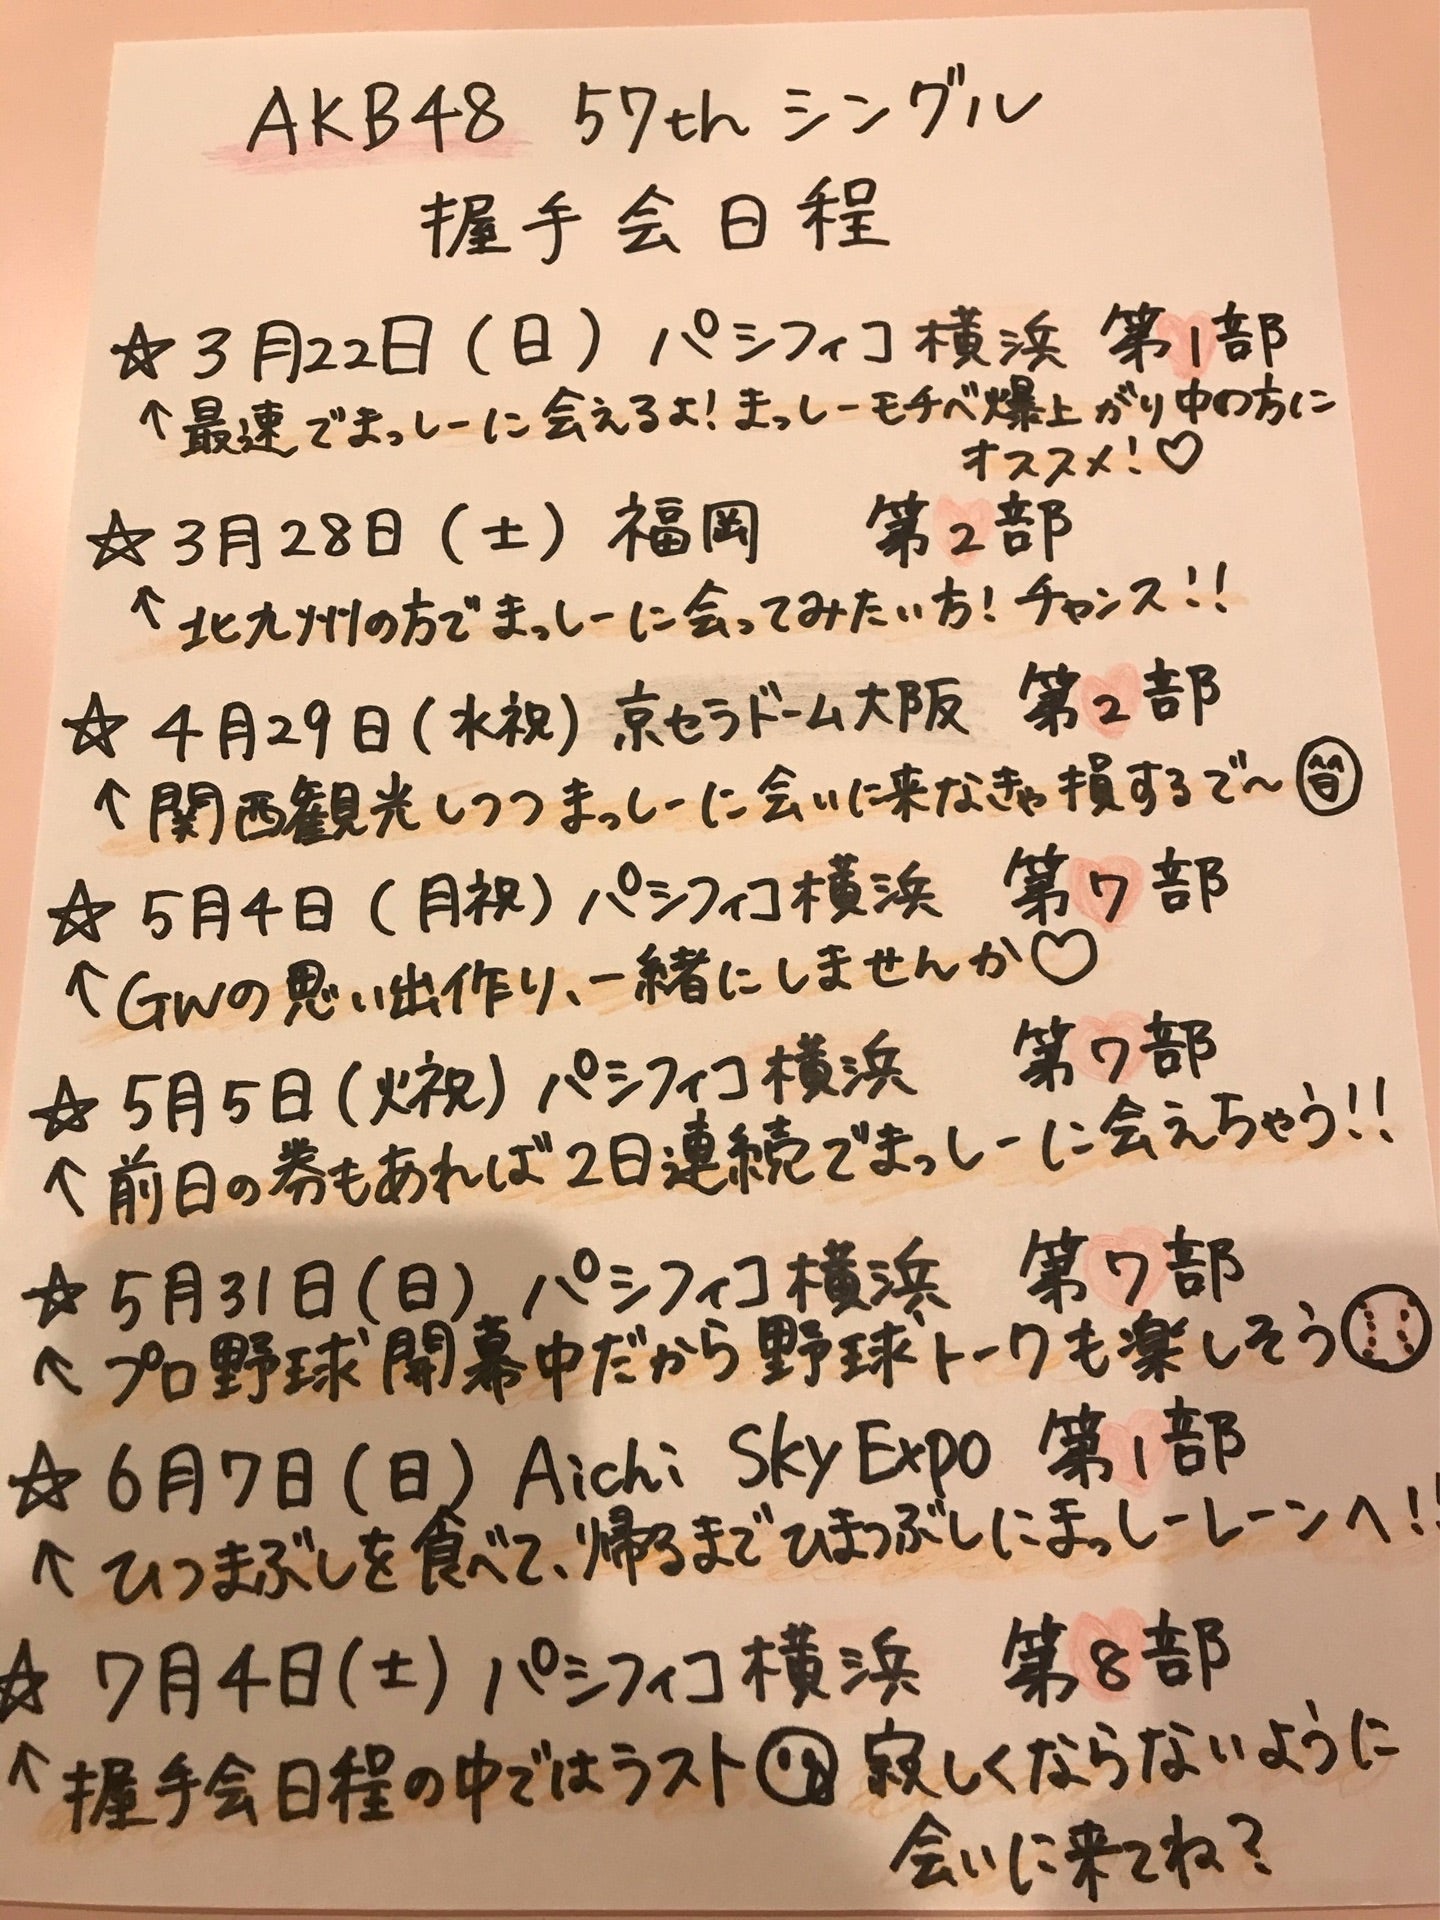 AKB48 57thシングル
握手会日程
☆3月22日(日) パシフィコ横浜 第1部
↑最速でまっしーに会えるよ!まっしーモチベ爆上がり中の方に
オススメ!♡
☆3月28日(土) 福岡 第2部
↑北九州の方でまっしーに会ってみたい方!チャンス!!
☆4月29日(水祝) 京セラドーム大阪 第2部
↑関西観光しつつまっしーに会いに来なきゃ損するで〜
☆5月4日(月祝) パシフィコ横浜 第7部
↑GWの思い出作り、一緒にしませんか♡
☆5月5日(火祝) パシフィコ横浜 第7部
↑前日の券もあれば2日連続でまっしーに会えちゃう!!
☆5月31日(日) パシフィコ横浜 第7部
↑プロ野球開幕中だから野球トークも楽しそう
☆6月7日(日) Aichi Sky Expo 第1部
↑ひつまぶしを食べて、帰るまでひまつぶしにまっしーレーンへ!!
☆7月4日(土) パシフィコ横浜 第8部
↑握手会日程の中ではラスト 寂しくならないように
会いに来てね?